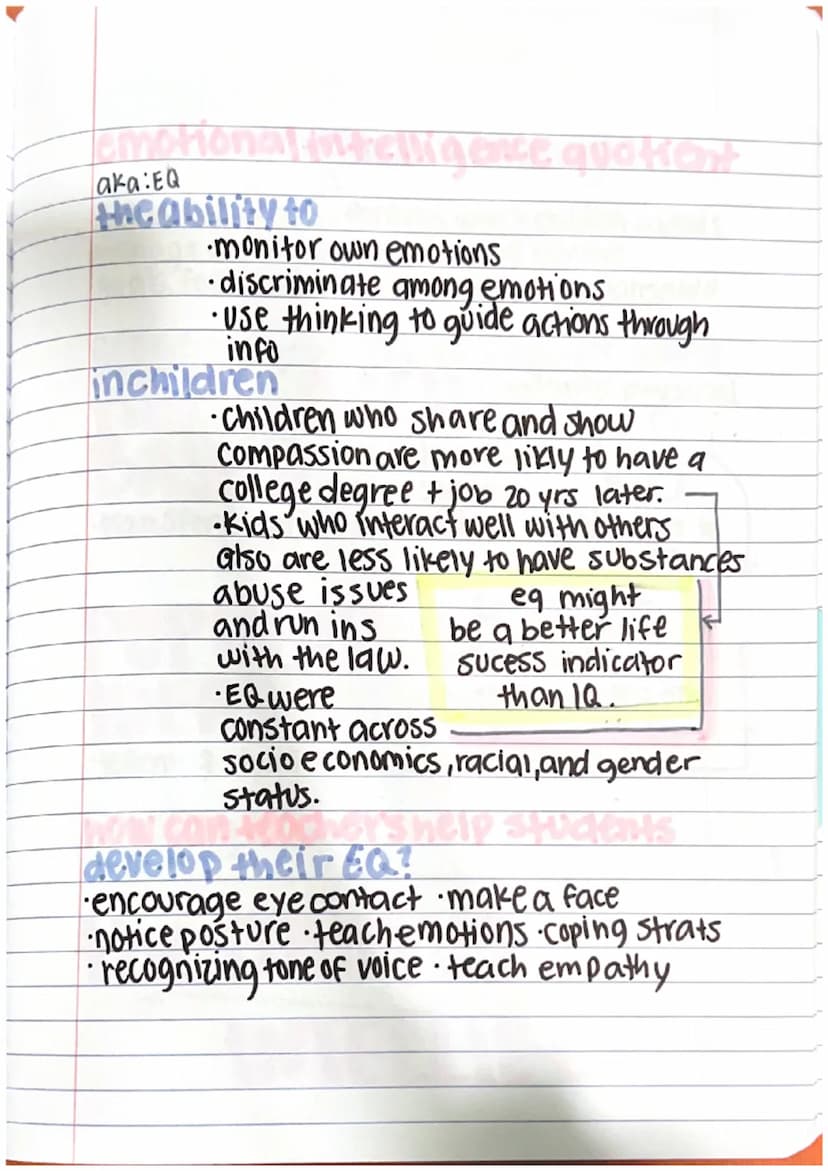 emotional intelligence quotient
aka: EQ
the ability to
·monitor own emotions
·discriminate among emotions
·use thinking to guide actions through
info
in children
·children who share and show
compassion are more likly to have a
college degree + job 20 yrs later.
·kids who interact well with others
also are less likely to have substances
abuse issues
and run ins
with the law.
eq might
be a better life
sucess indicator
than IQ.
·EQ were
constant across
socioeconomics, racial, and gender
status.
how can teacher's help students
develop their EQ?
·encourage eye contact ·make a face
·notice posture ·teach emotions ·coping strats
·recognizing tone of voice ·teach empathy